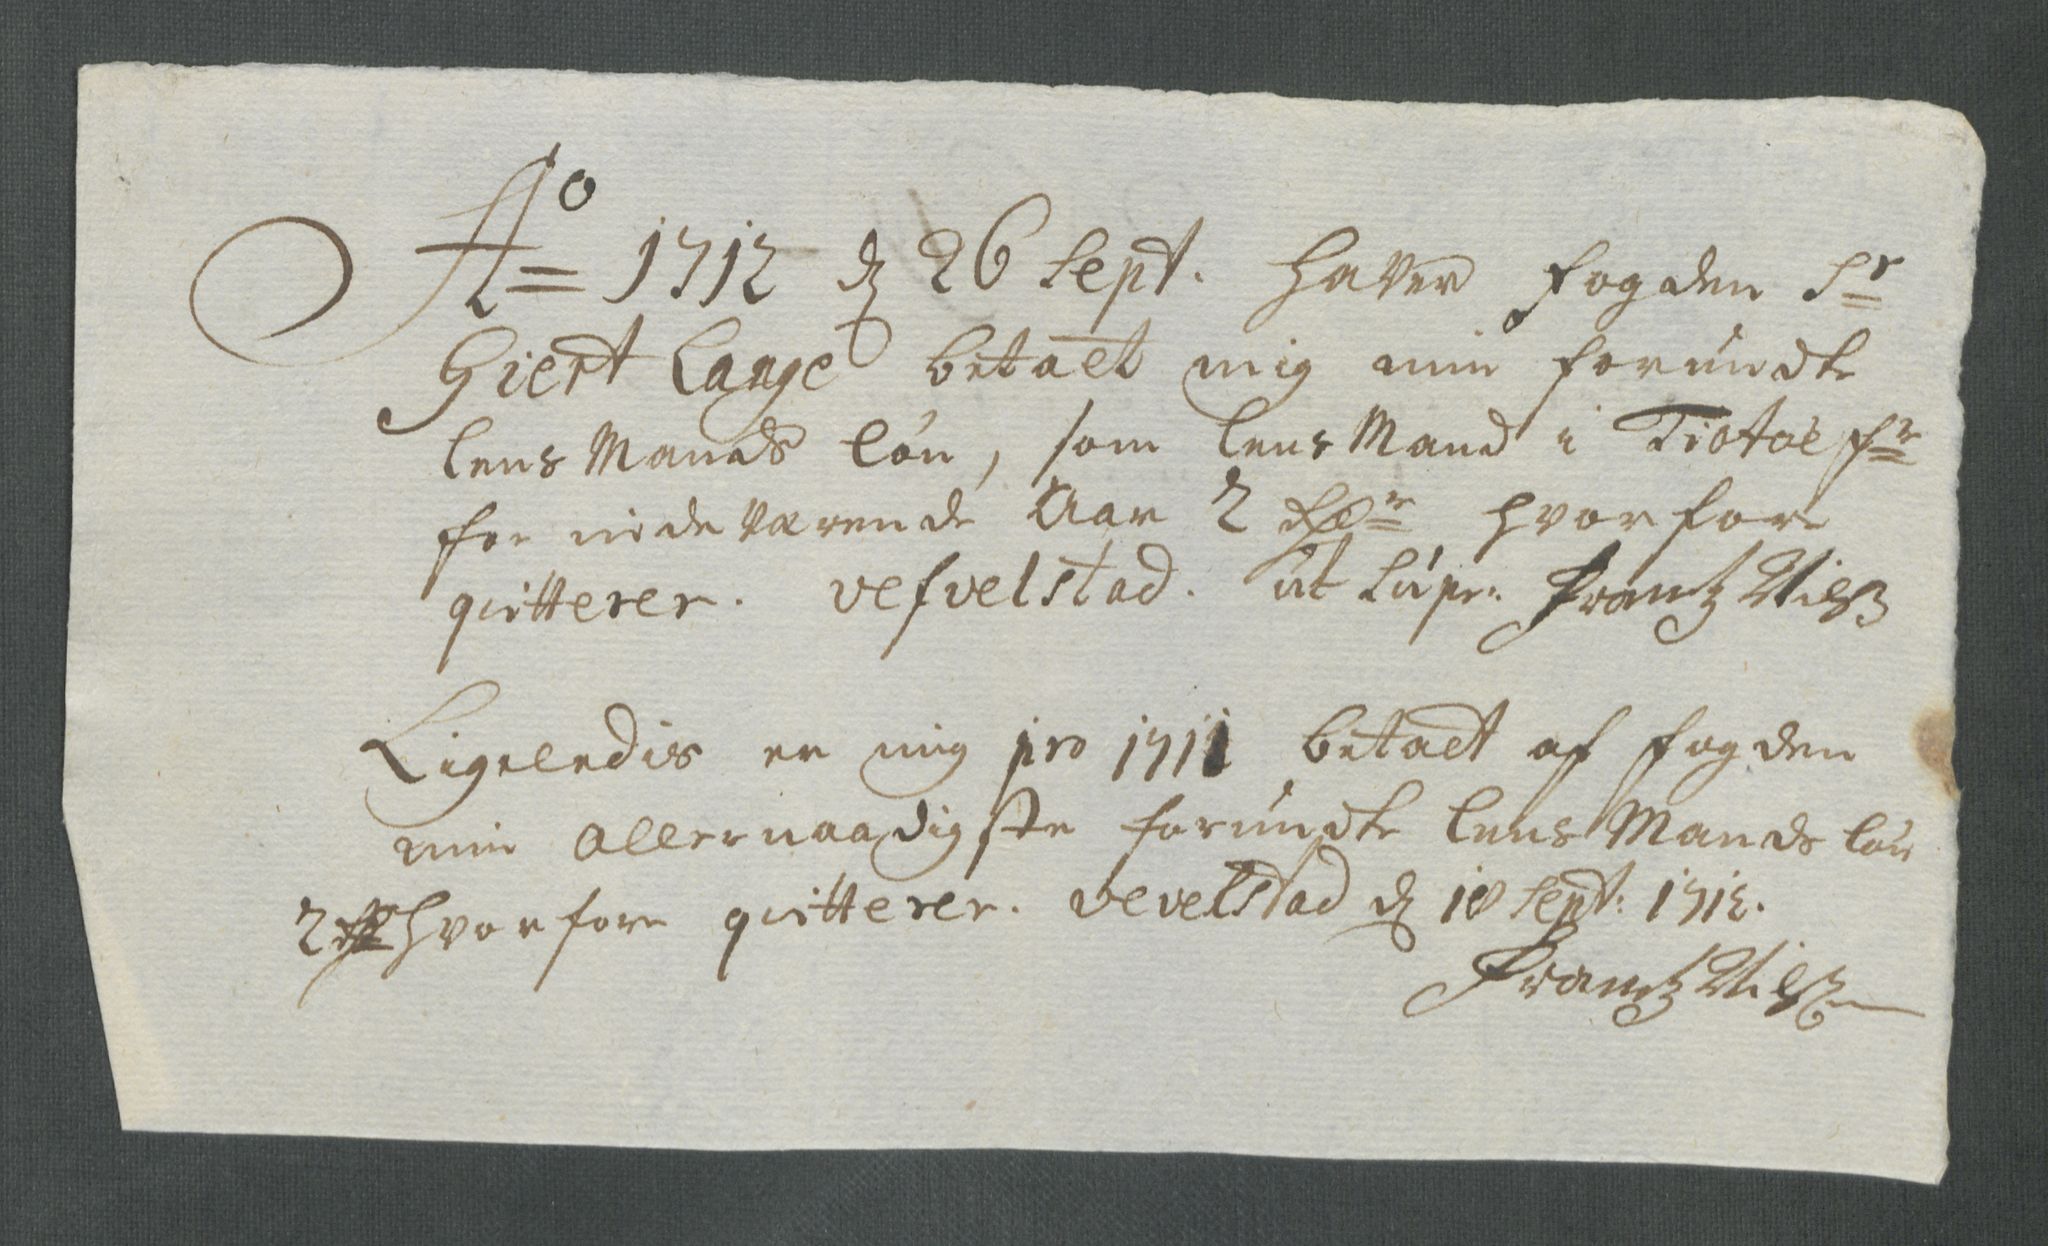 Ao 1712 d 26 Sept. Haver fogden Sr
Giert Lange betalt mig min forundte
lens Mands lön, som lens Mand i Tiotöe fr
for nerværende Aar 2 Rdr hvorfore
qvitterer. Vefvelstad. ut supr: Frantz Nilß
Ligeledis er mig pro 1711 betalt af fogden
min Allernaadigste forundte lens Mands lön
2 Rdr hvorfore qvitterer. Vevelstad d 18 Sept: 1712.
Frantz Nilß